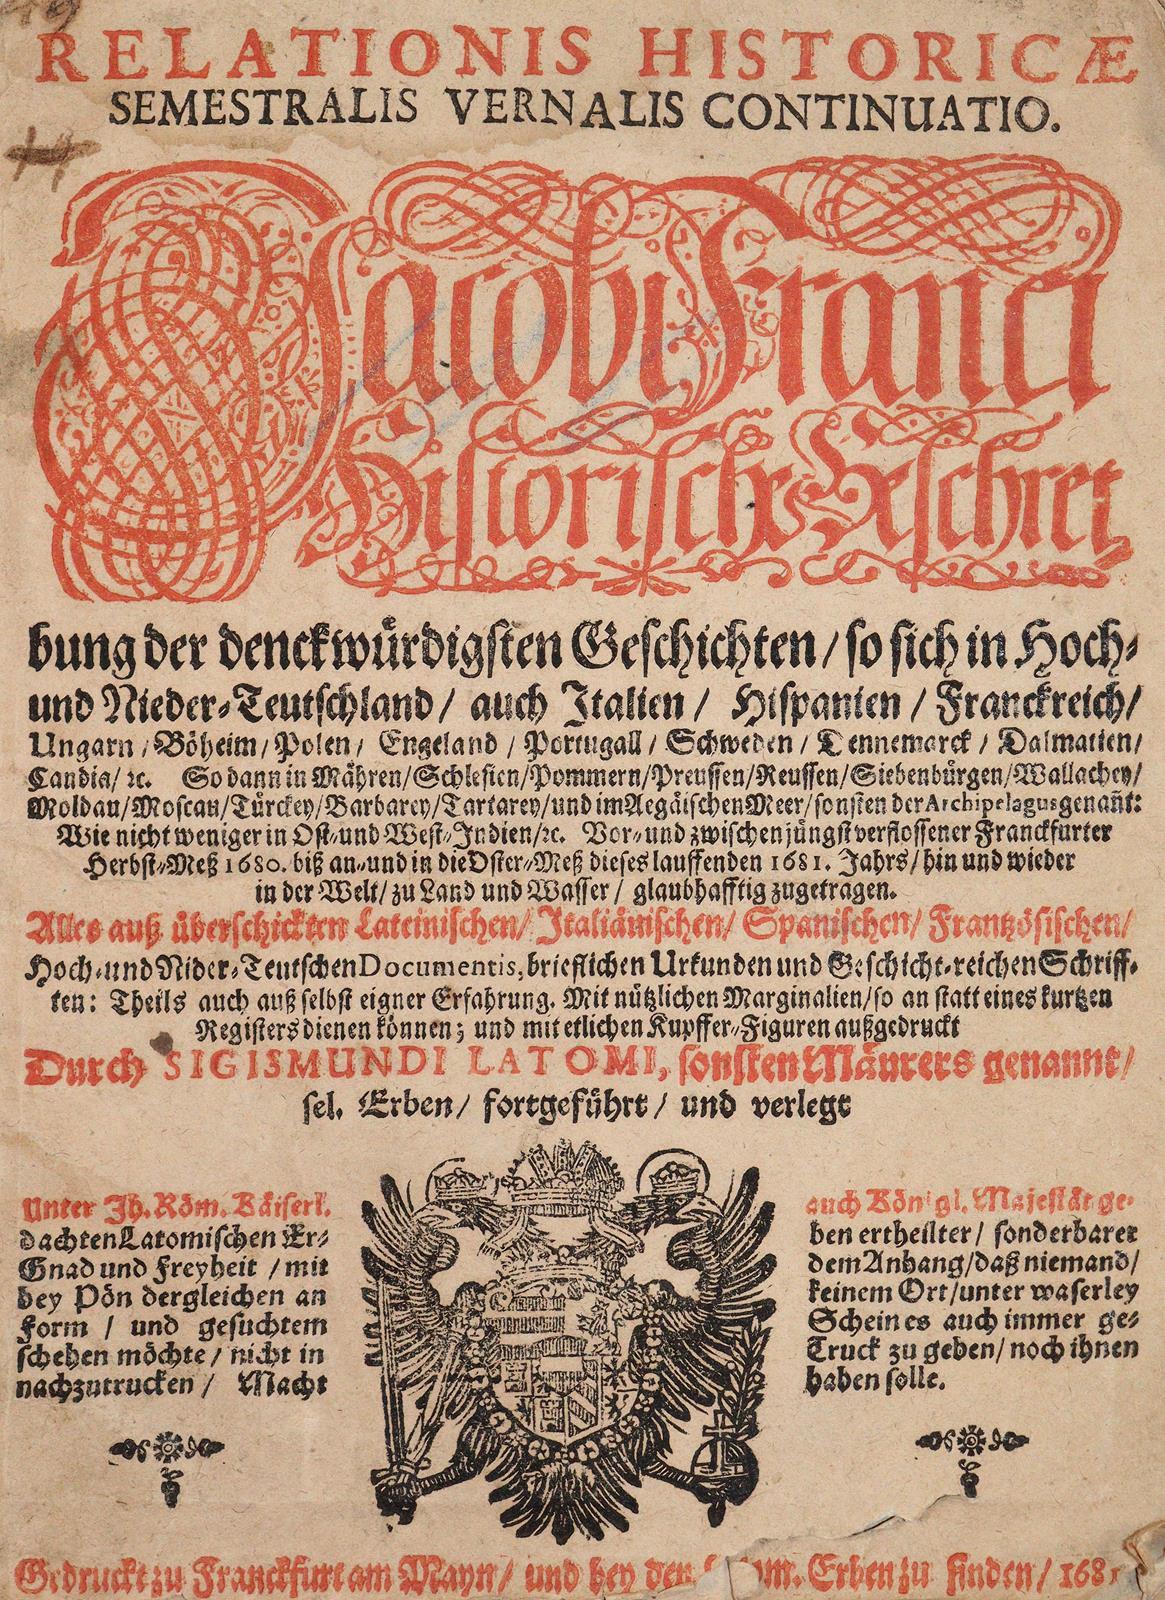 RELATIONIS HISTORICÆ
SEMESTRALIS VERNALIS CONTINUATIO.
Jacobi Franci
Historische Beschrei
bung der denckwürdigsten Geschichten / so sich in Hoch-
und Nieder-Teutschland / auch Italien / Hispanien / Franckreich /
Ungarn / Böheim / Polen / Engeland / Portugall / Schweden / Dennemarck / Dalmatien /
Candia / ꝛc. So dann in Mähren / Schlesien / Pommern / Preussen / Reussen / Siebenbürgen / Wallachey /
Moldau / Moscau / Türckey / Barbarey / Tartarey / und im Aegäischen Meer / sonsten der Archipelagus genañt:
Wie nicht weniger in Ost- und West-Indien / ꝛc. Vor- und zwischen jüngst verflossener Franckfurter
Herbst-Meß 1680. biß an- und in die Oster-Meß dieses lauffenden 1681. Jahrs / hin und wieder
in der Welt / zu Land und Wasser / glaubhafftig zugetragen.
Alles auß überschickten Lateinischen / Italiänischen / Spanischen / Frantzösischen /
Hoch- und Nider-Teutschen Documentis, brieflichen Urkunden und Geschicht-reichen Schriff-
ten: Theils auch auß selbst eigner Erfahrung. Mit nützlichen Marginalien / so an statt eines kurtzen
Registers dienen können; und mit etlichen Kupffer-Figuren außgedruckt
Durch SIGISMUNDI LATOMI, sonsten Mäurers genannt /
sel. Erben / fortgeführt / und verlegt
Unter Jh. Röm. Käiserl. auch Königl. Majestät ge-
dachten Latomischen Er- ben ertheilter / sonderbarer
Gnad und Freyheit / mit dem Anhang / daß niemand /
bey Pön dergleichen an keinem Ort / unter waserley
Form / und gesuchtem Scheines auch immer ge-
schehen möchte / nicht in Truck zu geben / noch ihnen
nachzutrucken / Macht haben solle.
Gedruckt zu Franckfurt am Mayn / und bey den Erben zu finden / 1681